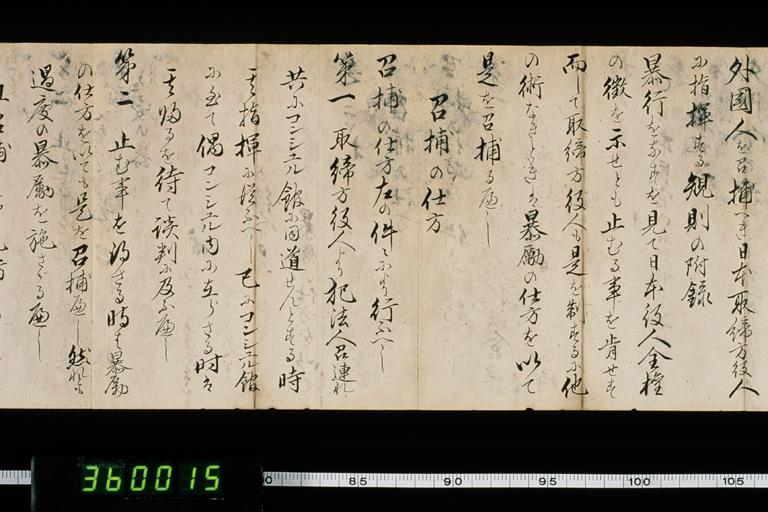 外國人を召捕へき日本取締方役人
に指揮する規則の附録
暴行をなすを見て日本役人全権
の徴を示せとも止むる事を肯せす
而して取締方役人も是を制するに他
の術なきときは暴励の仕方を以て
是を召捕るへし
召捕の仕方
召捕の仕方左の件々にて行ふへし
第一 取締方役人より犯法人召連れ
共にコンシユル館に同道せんとする時
其指揮に従ふへし 已にコンシユル館
に至て偶コンシユル内に立さる時は
其帰るを待て談判に及ふへし
第二 止む事を得さる時は暴励
の仕方を以ても是を召捕へし 然れとも
過度の暴励を施さゝるへし
360015
85 90 95 100 105